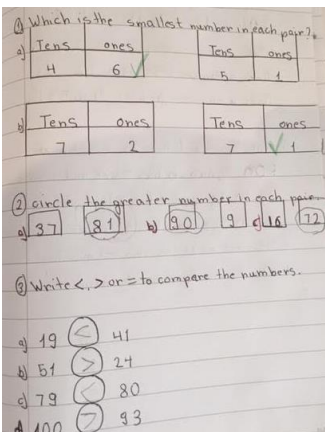 ① Which is the smallest number in each pair?
a) Tens ones Tens ones
4 6 ✓ 5 1
b) Tens ones Tens ones
7 2 7 ✓ 1
② circle the greater number in each pair.
a) 37 81 b) 90 9 c) 16 72
③ Write <, > or = to compare the numbers.
a) 19 < 41
b) 51 > 24
c) 79 < 80
d 100 > 93